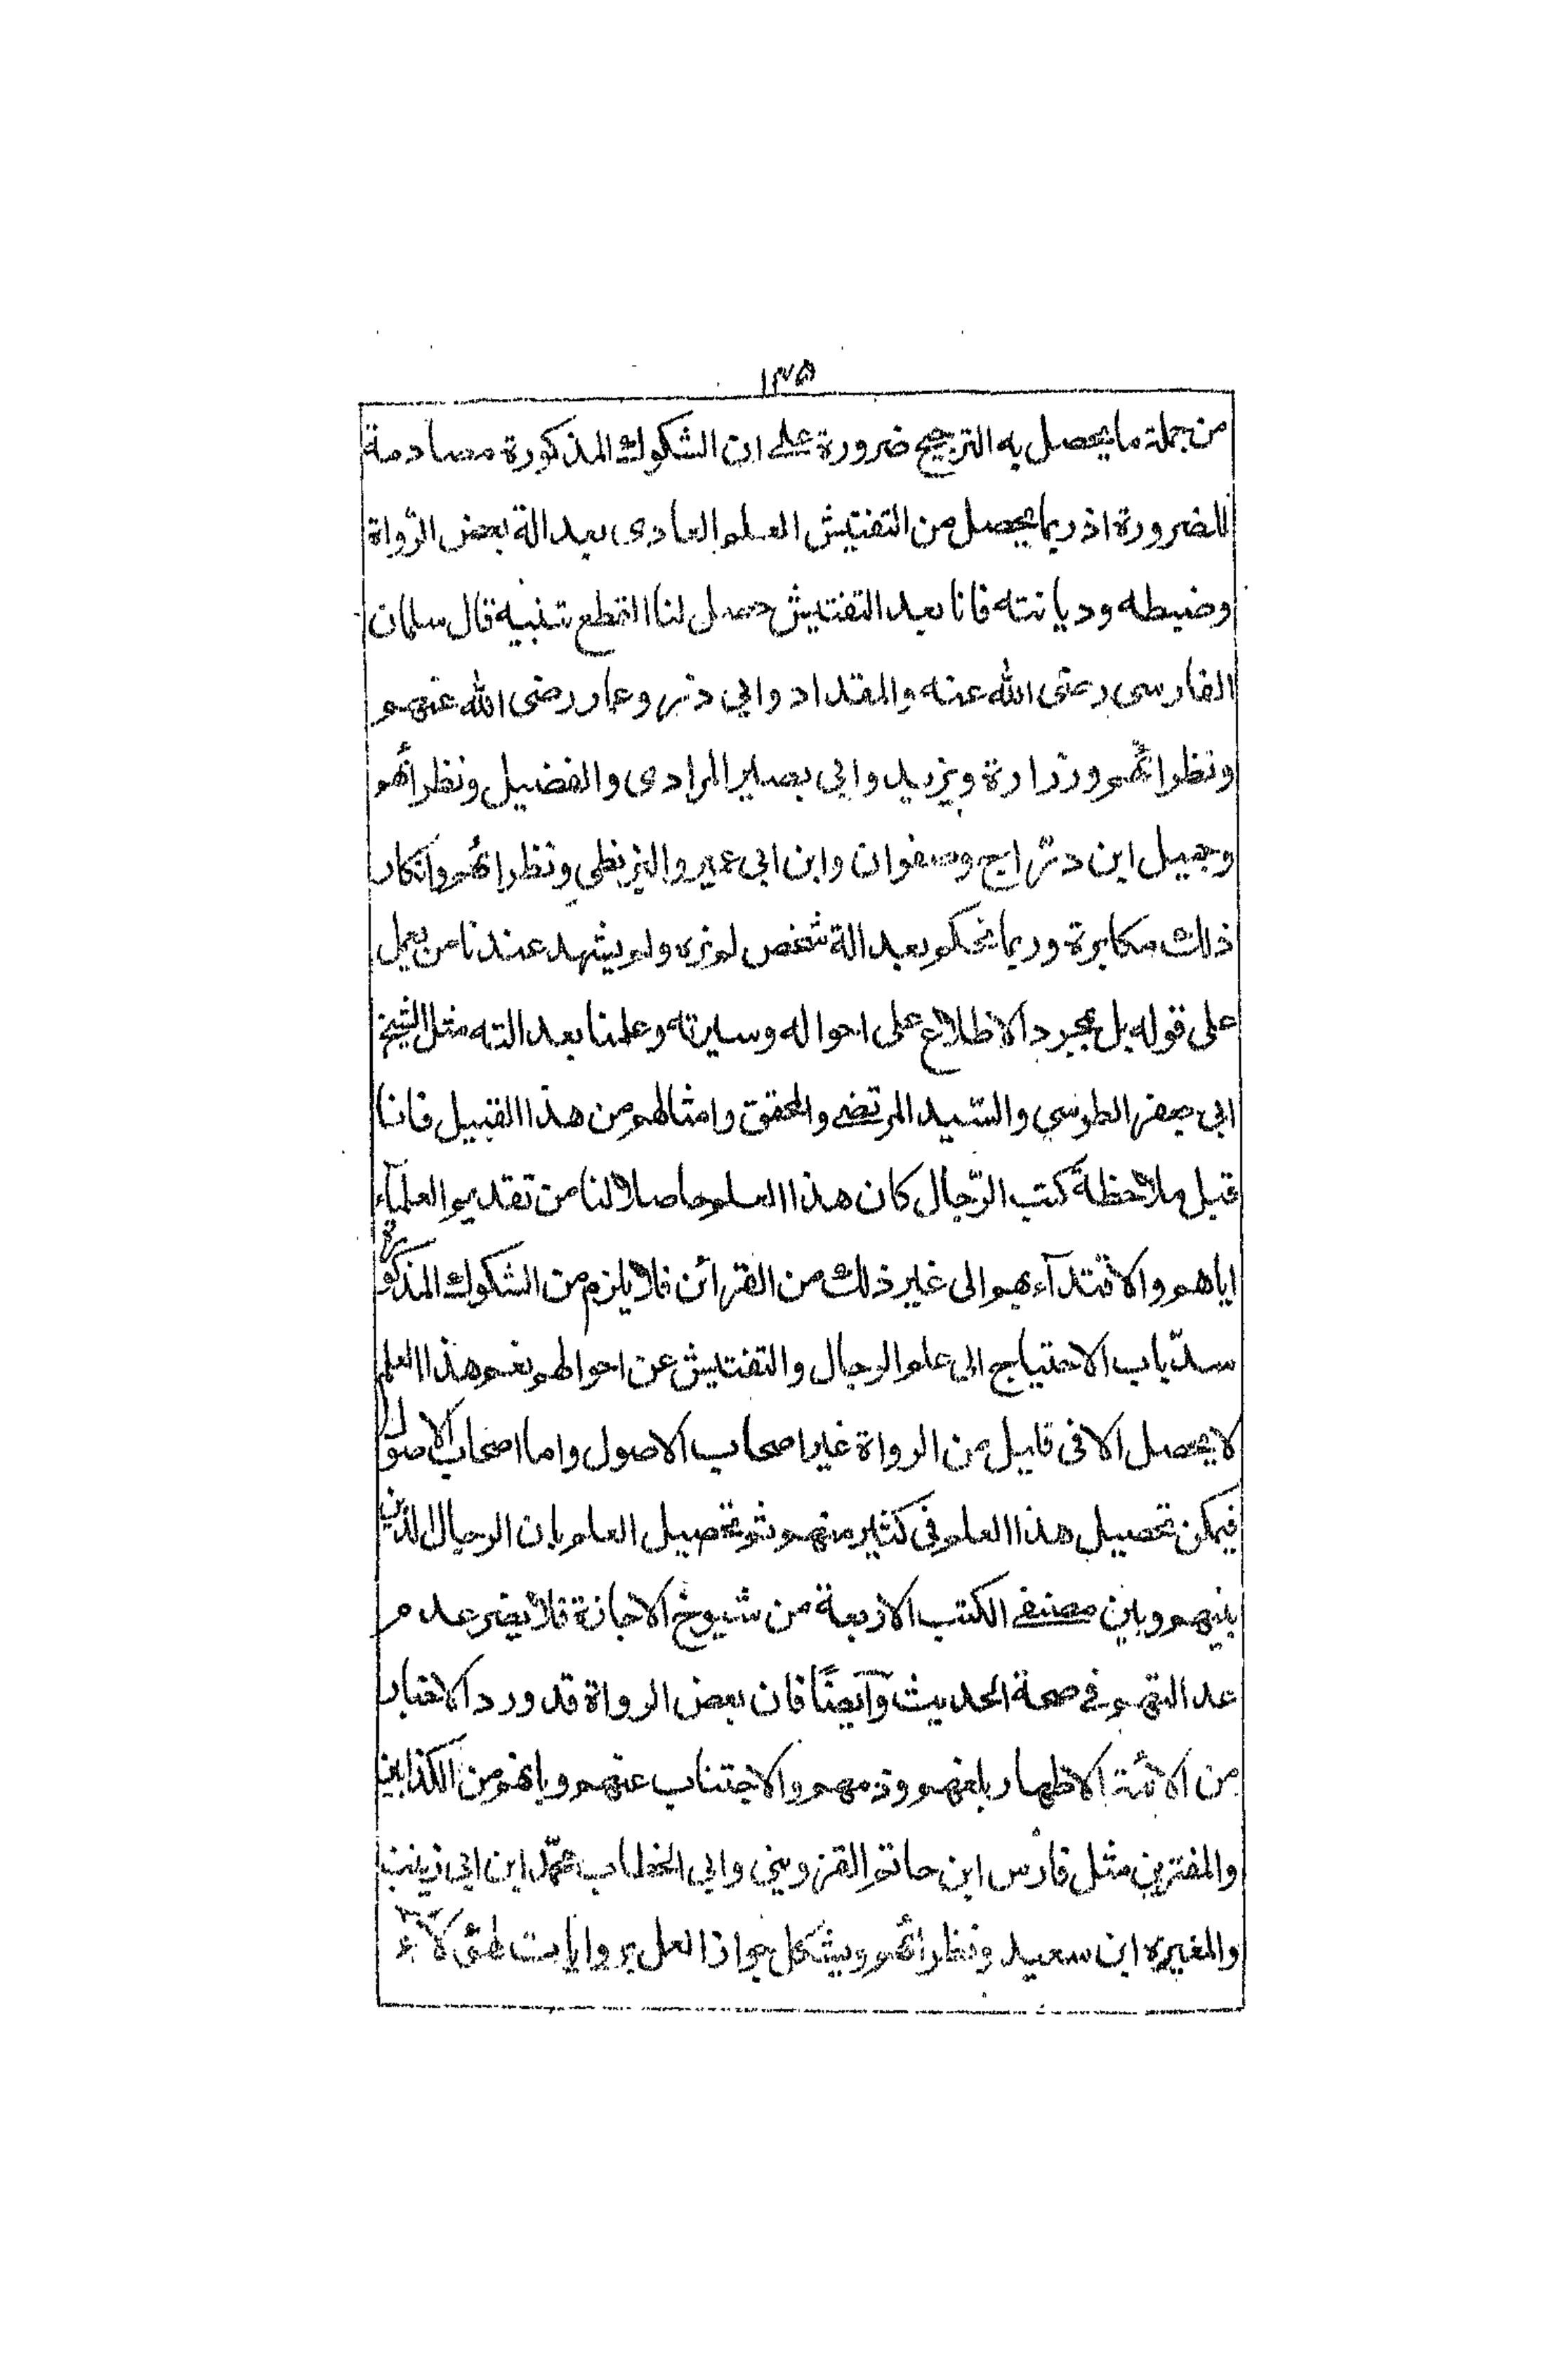 ١٣٥
من جملة ما يحصل به الترجيح ضرورة على ان الشكوك المذكورة مصادمة
للضرورة اذ ربما يحصل من التفتيش العلم العادى بعدالة بعض الرّواة
وضبطه وديانته فانا بعد التفتيش حصل لنا القطع بتنبيه قال سلمان
الفارسى رضى الله عنه والمقداد وابي ذر وعمار رضى الله عنهم
ونظرائهم وزرارة وبريد وابي بصير المرادى والفضيل ونظرائهم
وجميل ابن درّاج وصفوان وابن ابى عمير والبزنطي ونظرائهم وانكار
ذلك مكابرة وربما نحكم بعدالة شخص لم نره ولم يشهد عندنا من يعمل
على قوله بل بمجرد الاطلاع على احواله وسيرته وعلمنا بعدالته مثل الشيخ
ابى جعفر الطوسي والسّيد المرتضى والمحقق وامثالهم من هذا القبيل فانا
قبل ملاحظة كتب الرّجال كان هذا العلم حاصلا لنا من تقديم العلمآء
اياهم والاقتدآء بهم الى غير ذلك من القرائن فلا يلزم من الشكوك المذكورة
سدّ باب الاحتياج الى علم الرجال والتفتيش عن احوالهم نعم هذا العلم
لا يحصل الا فى قليل من الرواة غير اصحاب الاصول واما اصحاب الاصول
فيمكن تحصيل هذا العلم فى كثير منهم ثم تحصيل العلم بان الرجال الذين
بينهم وبين مصنفى الكتب الاربعة من شيوخ الاجازة فلا يضر عدم
عدالتهم فى صحة الحديث وآيضًا فان بعض الرواة قد ورد الاخبار
من الائمة الاطهار بلعنهم وذمهم والاجتناب عنهم وبانهم من الكذابين
والمفترين مثل فارس ابن حاتم القزويني وابي الخطاب محمّد ابن ابى زينب
والمغيره ابن سعيد ونظرائهم ويشكل جواز العمل بروايات هؤلآء